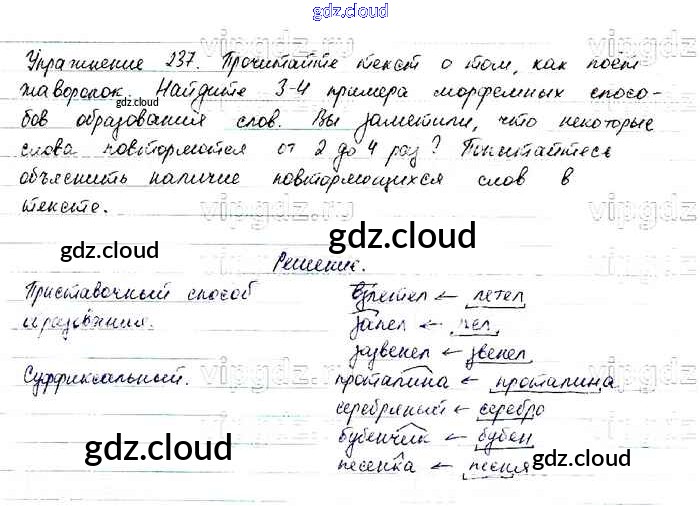 gdz.cloud
Упражнение 237. Прочитайте текст о том, как поёт
жаворонок. Найдите 3-4 примера морфемных спосо-
gdz.cloud
бов образования слов. Вы заметили, что некоторые
слова повторяются от 2 до 4 раз? Попытайтесь
объяснить наличие повторяющихся слов в
тексте.
vipgdz.ru
gdz.cloud
gdz.cloud
Решение.
Приставочный способ взлетел ← летел
образования. запел ← пел
зазвенел ← звенел
Суффиксальный. проталинка ← проталина
серебряный ← серебро
бубенчик ← бубен
песенка ← песня
gdz.cloud
gdz.cloud
gdz.cloud